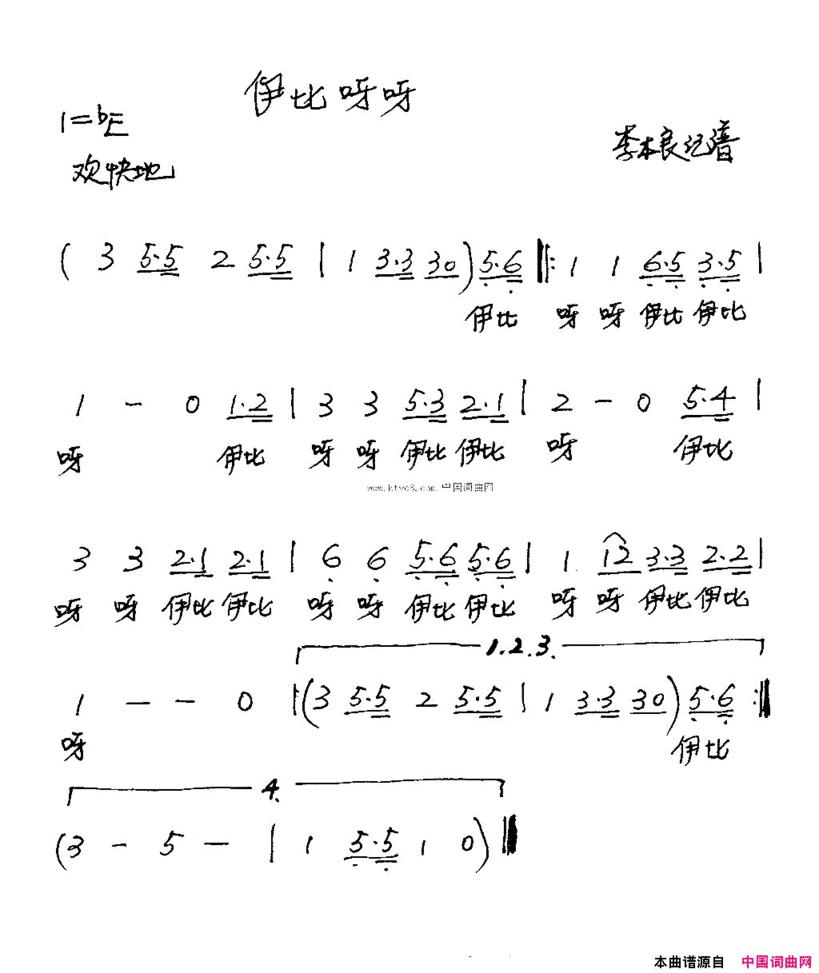 伊比呀呀
1=bE
欢快地
李本良记谱
( 3 5·5 2 5·5 | 1 3·3 30 ) 5·6 ‖: 1 1 6·5 3·5 |
伊比 呀 呀 伊比 伊比
1 - 0 1·2 | 3 3 5·3 2·1 | 2 - 0 5·4 |
呀 伊比 呀 呀 伊比 伊比 呀 伊比
www.ktvc8.com 中国词曲网
3 3 2·1 2·1 | 6 6 5·6 5·6 | 1 12 3·3 2·2 |
呀 呀 伊比 伊比 呀 呀 伊比 伊比 呀 呀 伊比 伊比
1.2.3.
1 - - 0 |( 3 5·5 2 5·5 | 1 3·3 30 ) 5·6 :‖
呀 伊比
4.
(3 - 5 - | 1 5·5 1 0 ) ‖
本曲谱源自 中国词曲网